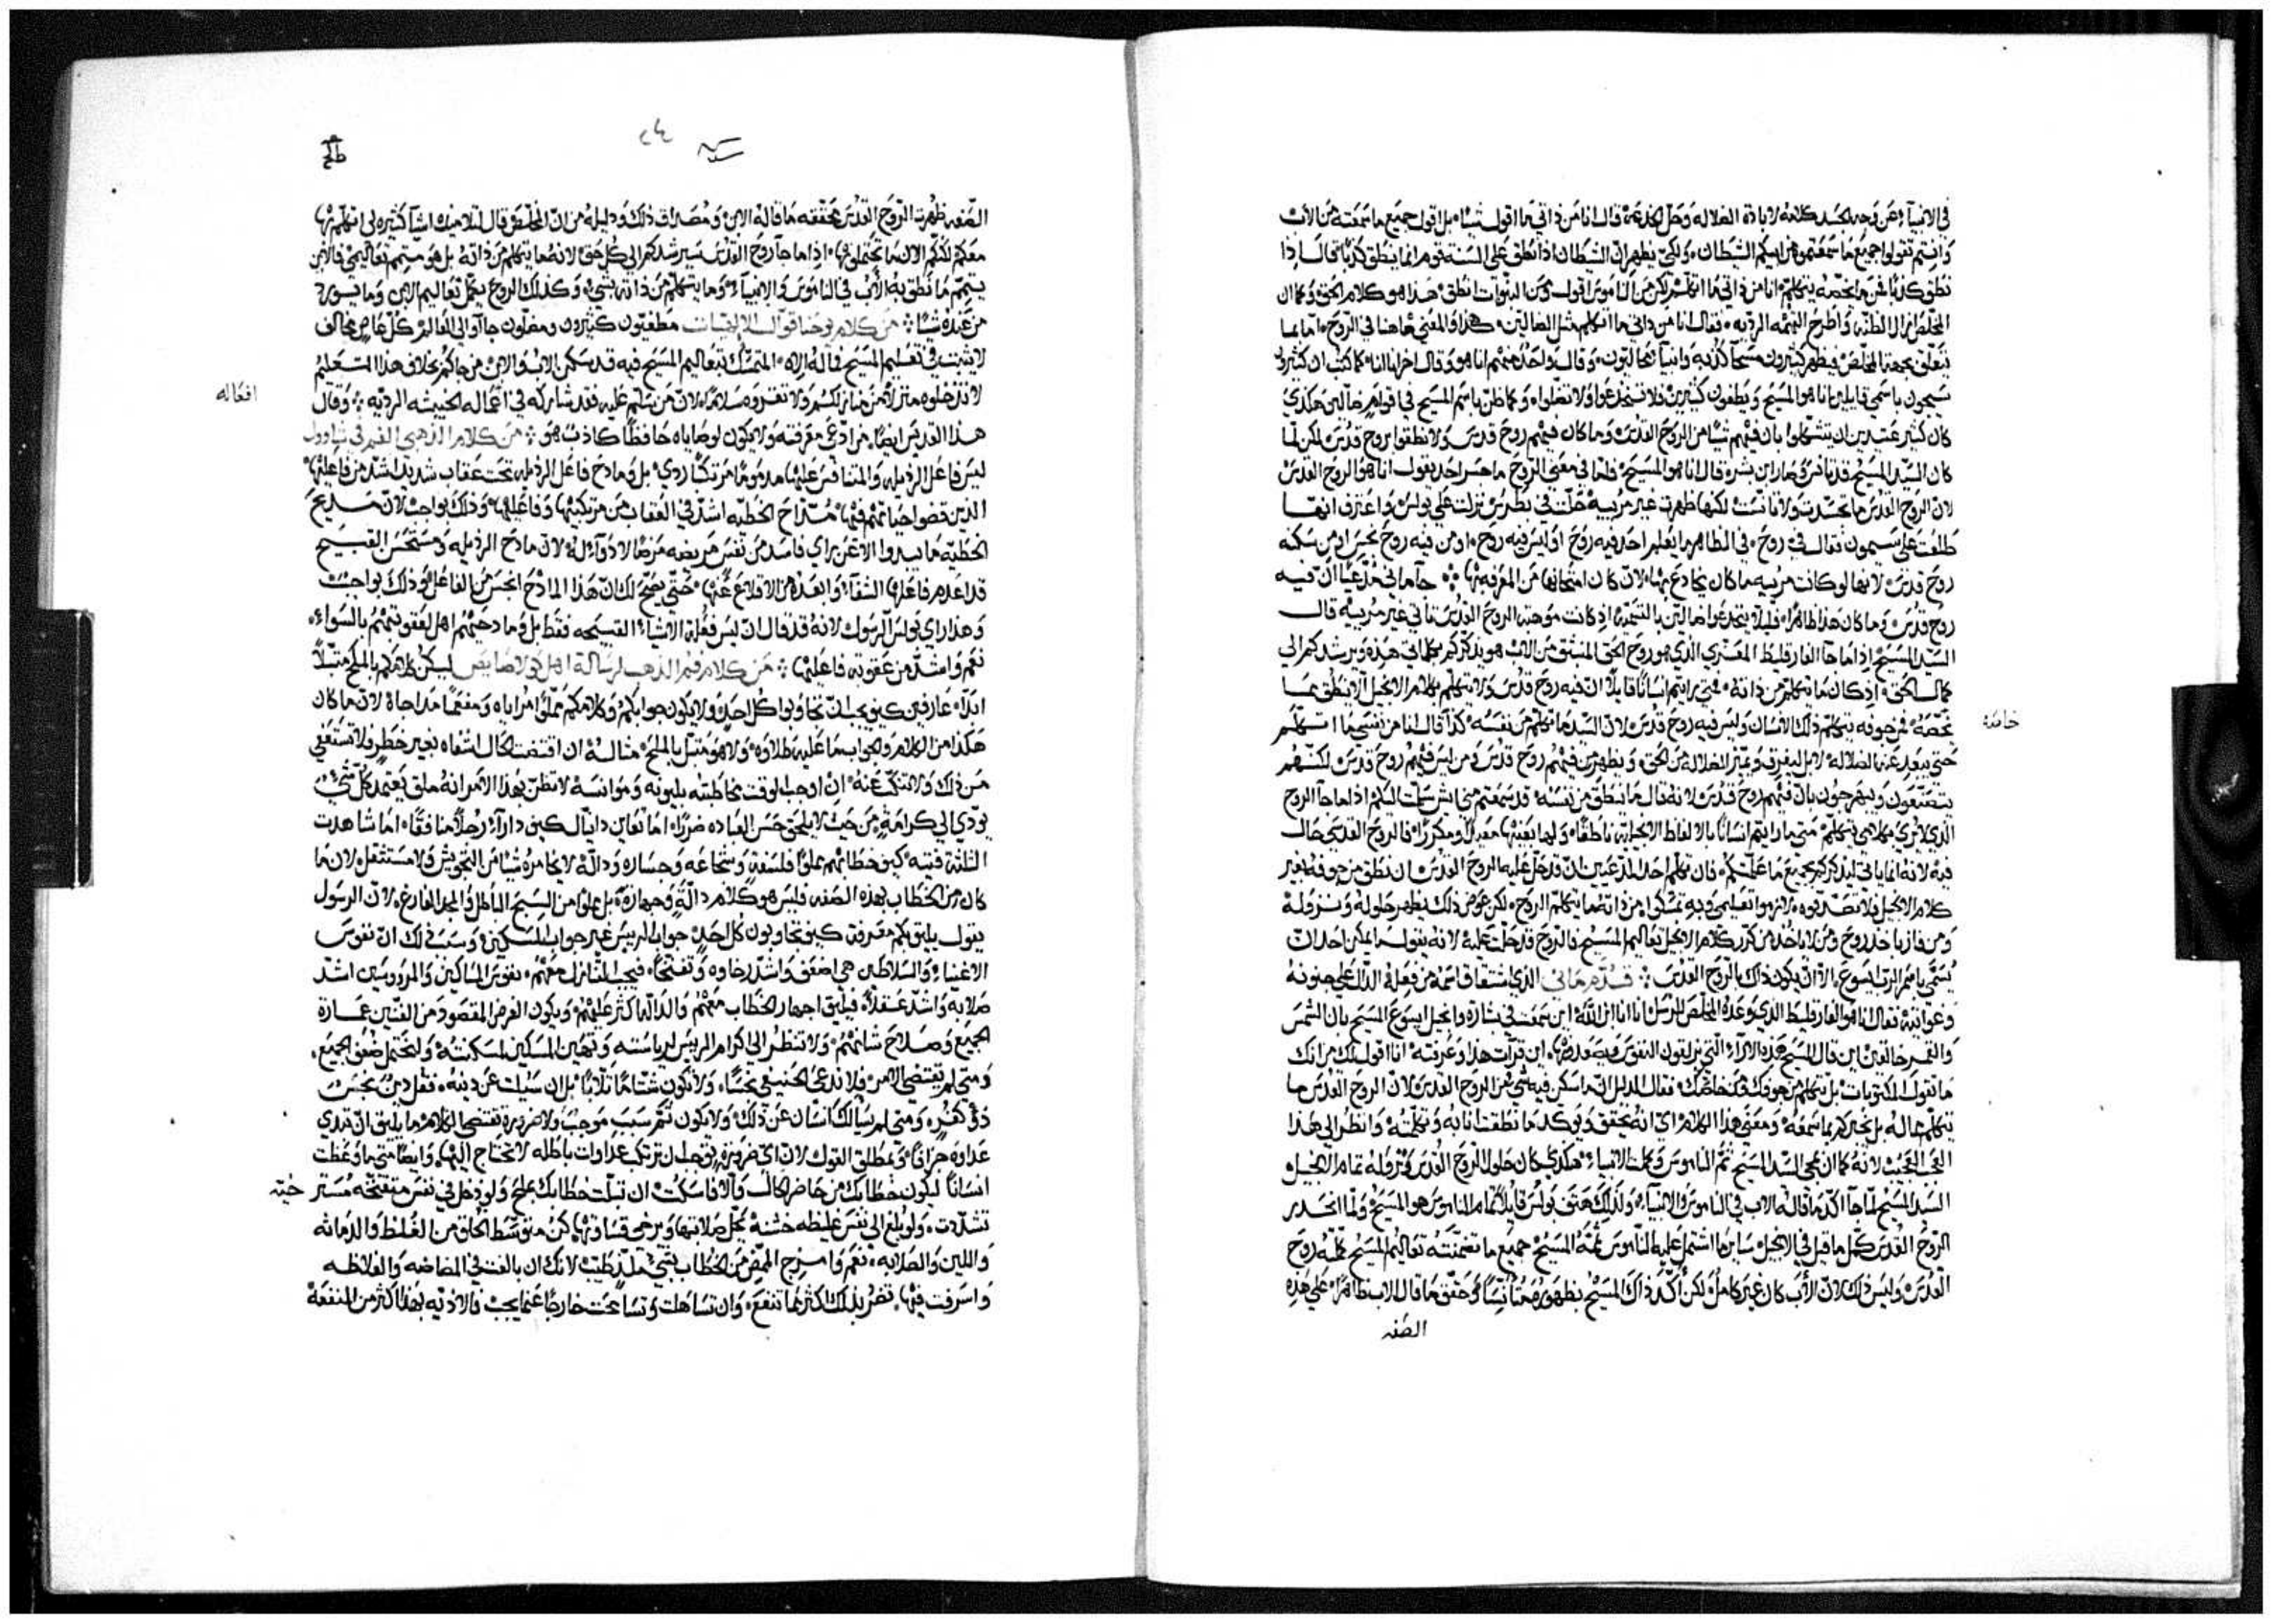 في الانبيآء عن وجه الجسد كلامه لابادة الضلاله وحل الخدعه قال انا من ذاتي ما اقول شيئاً بل اقول جميع ما سمعته من الاب
وانتم تقولوا جميع ما سمعتموه من ابيكم الشيطان ولكي يظهر ان الشيطان اذا نطق على السنة قوم انما ينطق كذباً قال اذا
نطق كذباً فمن ما يخصه يتكلم انا من ذاتي ما اتكلم لكن من الناموس اقول ومن النبوات انطق هذا هو كلام الحق وكما ان
المخلص ازال الظنه واطرح التهمه الرديه فقال انا من ذاتي ما اتكلم مثل الضالين هكذا والمعنى هاهنا في الروح اما بما
يتعلق بجهة المخلص فيظهر كثيرون مسحآ كذبه وانبيآ محالبون وقال واحد منهم انا هو وقال اخر انا انا كما كتب ان كثيرون
سيجون باسمي قايلين انا هو المسيح ويطغون كثيرين فلا تنخدعوا ولا تضلوا وكما ظن باسم المسيح في اقوام ضالين هكذى
كان كثير عتيدين ان يتشكلوا بان فيهم شيئاً من الروح القدس وما كان فيهم روح قدس ولا نطقوا بروح قدس لكن لما
كان السيد المسيح قد تانس وصار ابن بشر قال انا هو المسيح فاما في معنى الروح ما جسر احد يقول انا هو الروح القدس
لان الروح القدس ما تجسدت ولا تانست لكنها ظهرت غير مرييه حلت في بطرس نزلت على بولس واعترف انها
طلعت على سيمون فقال في روح في الظاهر ما يعلم احد فيه روح او ليس فيه روح او من فيه روح نجس او من سكنه
روح قدس لانها لو كانت مرييه ما كان يخادع بها لان كان امتحانها من المعرفه بها جآ ماني مدعياً ان فيه
روح قدس وما كان هذا ظاهرا فليلا يتخدعوا ضالين بالتسميه اذ كانت موهبة الروح القدس تاتي غير مرييه قال
السيد المسيح اذا ما جآ الفارقليط المعزي الذي هو روح الحق المنبثق من الاب هو يذكركم بكلماتي هذه ويرشدكم الى
كمال الحق اذ كان ما يتكلم من ذاته فمتى رايتم انساناً قايلا ان فيه روح قدس ولا يتكلم بكلام الانجيل الا ينطق بما
يخصه فمن جوفه يتكلم ذلك الانسان وليس فيه روح قدس لان السيد ما تكلم من نفسه كذا قال انا من نفسي ما اتكلم
خاصه
حتى يبعد عنه الضلاله لا بل ليفرق ويميز الضلاله من الحق ويظهر من فيهم روح قدس ومن ليس فيهم روح قدس لكنهم
يتصنعون ويبهرجون بان فيهم روح قدس لانه قال ما ينطق من نفسه
الذي لا يرى
فيه لانه انما ياتي ليذكركم بجميع ما علمتكم فان تكلم احد المدعيين ان قد حل عليه الروح القدس ان نطق من جوفه بغير
كلام الانجيل فلا تصدقوه
ومن فاز باخذ روح
يسمى باسم الرب ايسوع الا ان يكون ذاك بالروح القدس قدم ماني الذي اشتقاق اسمه من فعله الدال على جنونه
وغوايته فقال انا هو الفارقليط الذي وعد المخلص الرسل
والقمر خالقين اين قال المسيح هذه الارآء
ما تقول المكتوبات بل تتكلم من جوفك ومن خاصك
يتكلم بماله بل يخبركم بما سمعه ومعنى هذا الكلام اي انه يحقق ويوكد ما نطقت انا به وتكلمته وانظر الى هذا
العجب العجيب لانه كما ان مجي السيد المسيح تمم الناموس وكملت الانبياء هكذى كان حلول الروح القدس ونزوله تمام الانجيل
السيد المسيح لما جآ اكد ما قاله الاب في الناموس والانبيآء ولذلك هتف بولس قايلاً تمام الناموس هو المسيح ولما انحدر
الروح القدس كمل ما قيل في الانجيل ساير ما اشتمل عليه الناموس تممه المسيح جميع ما تضمنته تعاليم المسيح كملته روح
القدس وليس ذلك لان الأب كان غير كامل لكن أكد ذاك المسيح بظهوره متأنساً وحقق ما قال الاب ظاهراً على هذه
الصفه
٢٤
الصفه ظهرت الروح القدس محققه ما قاله الابن ومصداق ذلك ودليله من ان المخلص قال لتلاميذه اشيآ كثيره لى اتكلم بها
معكم لكنكم الان ما تحتملونها اذا ما جآ روح القدس سيرشدكم الى كل حق لانه ما يتكلم من ذاته بل هو متمم تعاليمي فالابن
يتمم ما نطق به الأب في الناموس والانبيآء وما يتكلم من ذاته بشيء وكذلك الروح يكمل تعاليم الابن وما يورد
من عنده شيئا من كلام يوحنا قوال الالهيات مطغيون كثيرون ومضلون جاآوا الى العالم كل عاص مخالف
لا يثبت في تعليم المسيح فما له إلاه المتمسك بتعاليم المسيح فيه قد سكن الاب والابن من جاكم بخلاف هذا التعليم
لا تدخلوه منزلا من منازلكم ولا تقروه سلاماً لان من سلم عليه فقد شاركه في اعماله الخبيثه الرديه وقال
افعاله
هذا القديس ايضاً من ادعى معرفته ولا يكون لوصاياه حافظاً كاذب هو من كلام الذهبي الفم في تياوول
ليس فاعل الرذيله والمتنافس عليها مذموما مرتكباً ردي بل ومادح فاعل الرذيله تحت عقاب شديد اشد من فاعلها
الذين قضوا حياتهم فيها مداح الخطيه اشد في العقاب من مرتكبيها وفاعليها وذلك بواجب لان مديح
الخطيه ما يبدوا الا عن راي فاسد من نفس مريضه مرضا لا دوآء له لان مادح الرذيله ومستحسن القبيح
قد اعدم فاعلها الشفآء وابعده من الاقلاع عنها حتى يصح لك ان هذا المادح انجس من الفاعل وذلك بواجب
وهذا راي بولس الرسول لانه قد قال ان ليس فعلة الاشياء القبيحه فقط بل ومادحيهم اهل لعقوبتهم بالسواء
نعم واشد من عقوبة فاعليها من كلام فم الذهب لرسالة اهل كولاصايص ليكن كلامكم بالملح متبلاً
ابداً عارفين كيف يجب ان تجاوبوا كل احد ولا يكون جوابكم وكلامكم مملوا مراياه ومفعما مداجاة لان ما كان
هكذا من الكلام والجواب ما عليه طلاوه ولا هو متبل بالملح مثاله ان اقتضت الحال اشفاه بغير خطر فلا تستعفي
من ذلك ولا تنكب عنه ان اوجب الوقت مخاطبته بليونه وموانسه لا تظن بهذا الامر انه ملق يعتمد كل شيء
يودي الى كرامة من حيث لا يلحق حسن العباده ضررا اما تعاين دانيال كيف دارآ رجلاً منافقاً اما شاهدت
الثلثة فتيه كيف خطابهم مملوا فلسفة وشجاعه وجساره ودالة لا يخامره شيئا من التجويش ولا مستثقل لان ما
كان من الخطاب بهذه الصفه فليس هو كلام دالة وجهارة بل مملوا من السبح الباطل والمجد الفارغ لان الرسول
يقول يليق بكم معرفة كيف تجاوبون كل احد جواب الريس غير جواب المسكين وسنشرح لك ان نفوس
الاغنياء والسلاطين هي اضعف واشد رخاوه وتفتحاً فيجب التنازل معهم نفوس المساكين والمرؤوسين اشد
صلابه واشد عقلاً فيليق اجهار الخطاب معهم والدالة اكثر عليهم ويكون الغرض المقصود من الفنين عمارة
الجميع وصلاح شانهم ولا تنظر الى اكرام الريس لرياسته وتهين المسكين لمسكنته ولتحتمل ضعف الجميع
ومتى لم يقتضي الامر فلا تدعى الحنيفي نجساً ولا تكون شتاماً ثلاباً بل ان سيلت عن دينه فقل دين نجس
ذو كفر ومتى لم يسالك انسان عن ذلك ولا يكون ثم سبب موجب ولا ضرورة تقتضي الكلام ما يليق ان تبدي
عداوة جزافاً وبمطلق القول لان اي ضروره توجب ان ترتكب عداوات باطله لا تحتاج اليها وايضاً متى ما وعظت
انساناً ليكون خطابك من حاضر الحال والا فاسكت ان تبلت خطابك بملح ولو دخل في نفس متفتحه مستر خيه
تشددت ولو بلغ الى نفس غليظه خشنة يحل صلابتها ويرخي قساوتها كن متوسط الخلق من الغلظ والدماثه
واللين والصلابه نعم وامزج الممض من الخطاب بشيء ملذ طيب لانك ان بالغت في الفضاضه والغلاظه
واسرفت فيها تضر بذلك اكثر مما تنفع وان تساهلت وتسامحت خارجا عما يجب فالاذيه بهذا اكثر من المنفعة